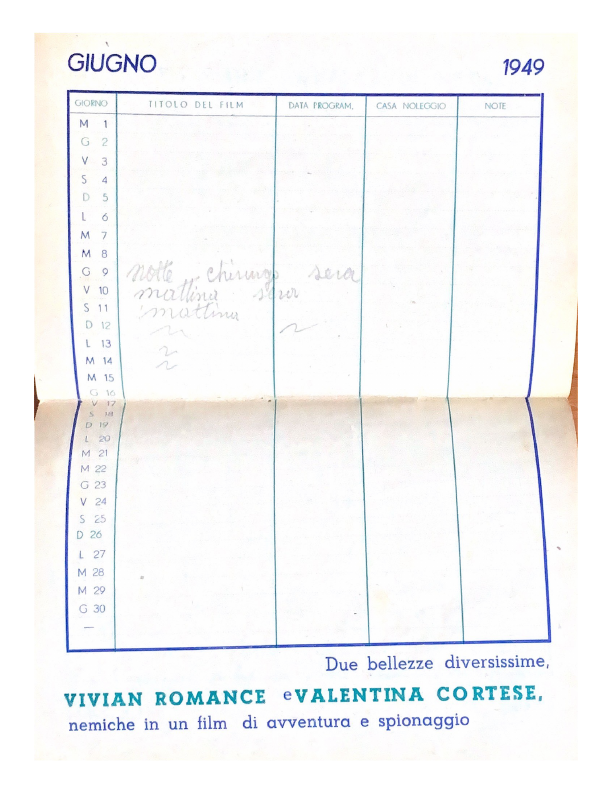 GIUGNO 1949
GIORNO TITOLO DEL FILM DATA PROGRAM. CASA NOLEGGIO NOTE
M 1
G 2
V 3
S 4
D 5
L 6
M 7
M 8
G 9 notte chirurgo sera
V 10 mattina sera
S 11 mattina
D 12
L 13
M 14
M 15
G 16
V 17
S 18
D 19
L 20
M 21
M 22
G 23
V 24
S 25
D 26
L 27
M 28
M 29
G 30
—
Due bellezze diversissime,
VIVIAN ROMANCE e VALENTINA CORTESE,
nemiche in un film di avventura e spionaggio